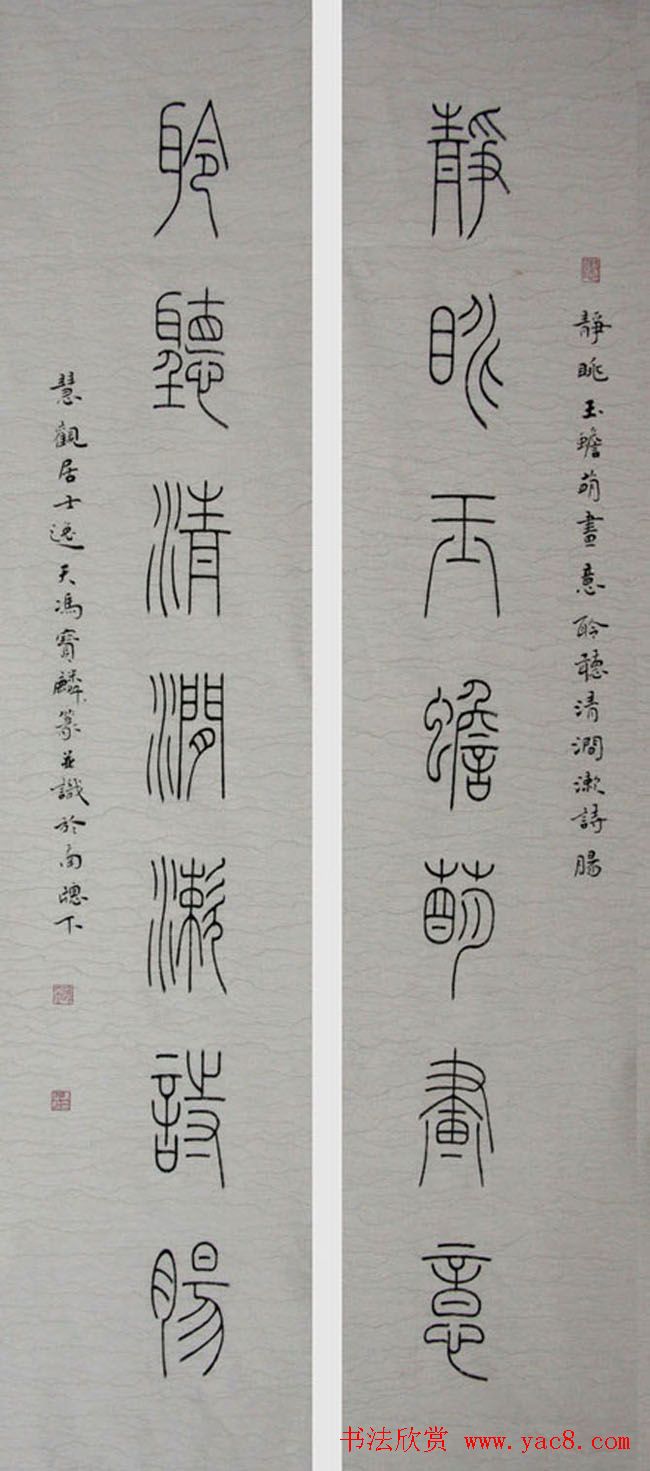 靜眺玉蟾萌畫意聆聽清澗漱詩腸
靜眺玉蟾萌畫意
聆聽清澗漱詩腸
慧觀居士逸天馮寶麟篆並識於南窗下
书法欣赏 www.yac8.com